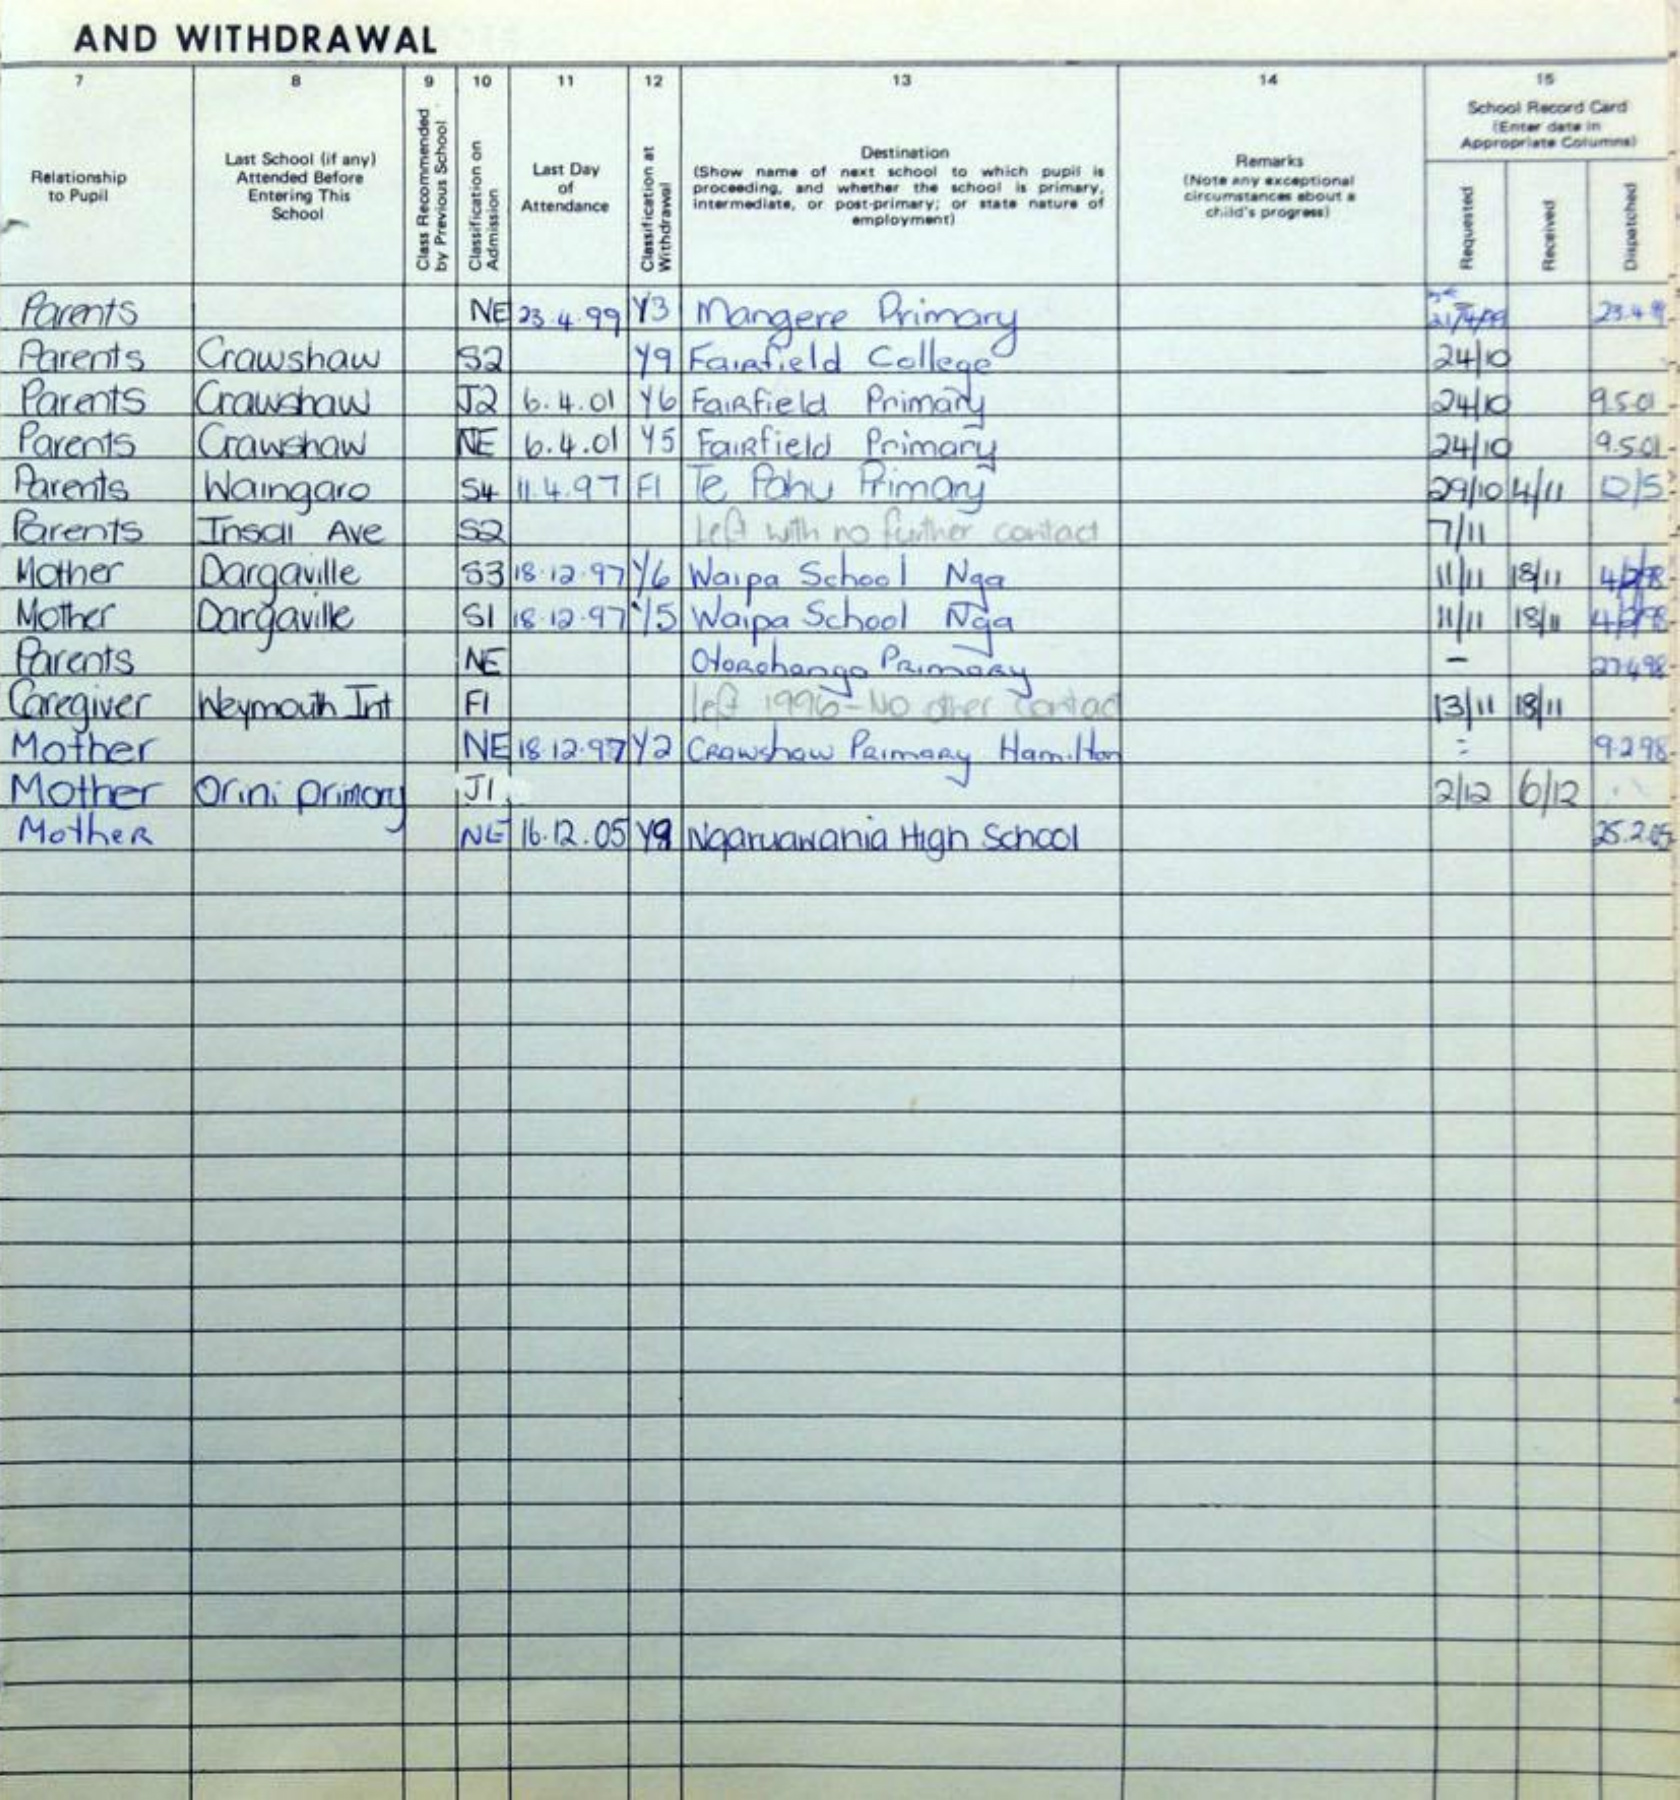 AND WITHDRAWAL
7 8 9 10 11 12 13 14 15
Relationship to Pupil
Last School (if any) Attended Before Entering This School
Class Recommended by Previous School
Classification on Admission
Last Day of Attendance
Classification at Withdrawal
Destination
(Show name of next school to which pupil is proceeding, and whether the school is primary, intermediate, or post-primary; or state nature of employment)
Remarks
(Note any exceptional circumstances about a child's progress)
School Record Card
(Enter date in Appropriate Columns)
Requested Received Dispatched
Parents NE 23.4.99 Y3 Mangere Primary
Parents Crawshaw S2 Y9 Fairfield College 24/10
Parents Crawshaw J2 6.4.01 Y6 Fairfield Primary 24/10 9.5.01
Parents Crawshaw NE 6.4.01 Y5 Fairfield Primary 24/10 9.5.01
Parents Waingaro S4 11.4.97 F1 Te Pahu Primary 29/10 4/11
Parents Insall Ave S2 Left with no further contact 7/11
Mother Dargaville S3 18.12.97 Y6 Waipa School Nga 11/11 18/11 4/2/98
Mother Dargaville S1 18.12.97 Y5 Waipa School Nga 11/11 18/11 4/2/98
Parents NE Otorohanga Primary - 27.4.98
Caregiver Weymouth Int F1 left 1996 - No other contac 13/11 18/11
Mother NE 18.12.97 Y2 Crawshaw Primary Hamilton 9.2.98
Mother Orini primary J1 2/12 6/12
Mother NE 16.12.05 Ngaruawania High School